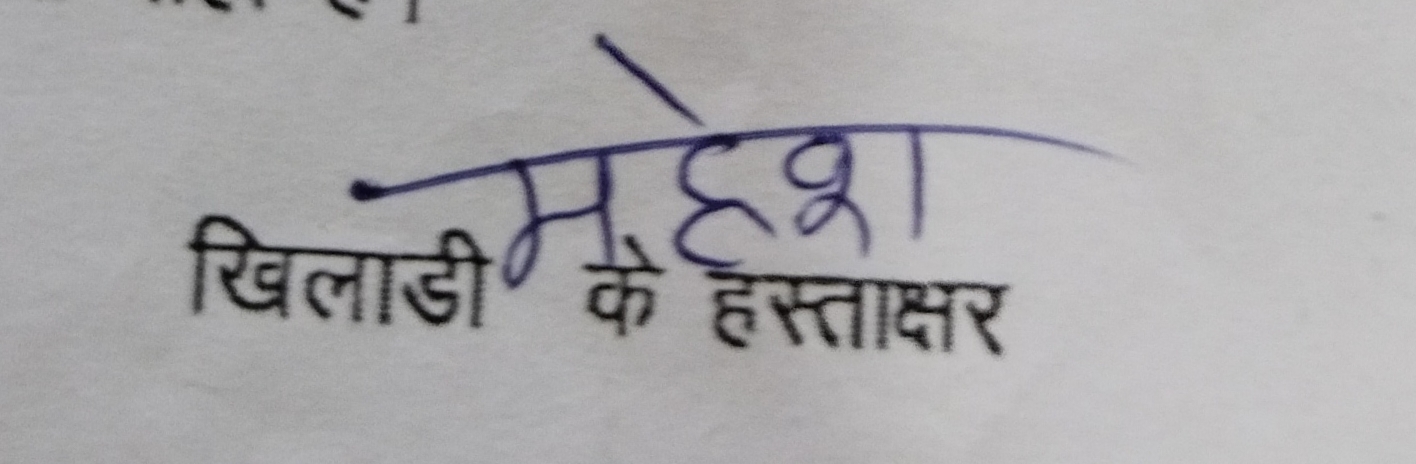 महेश
खिलाडी के हस्ताक्षर